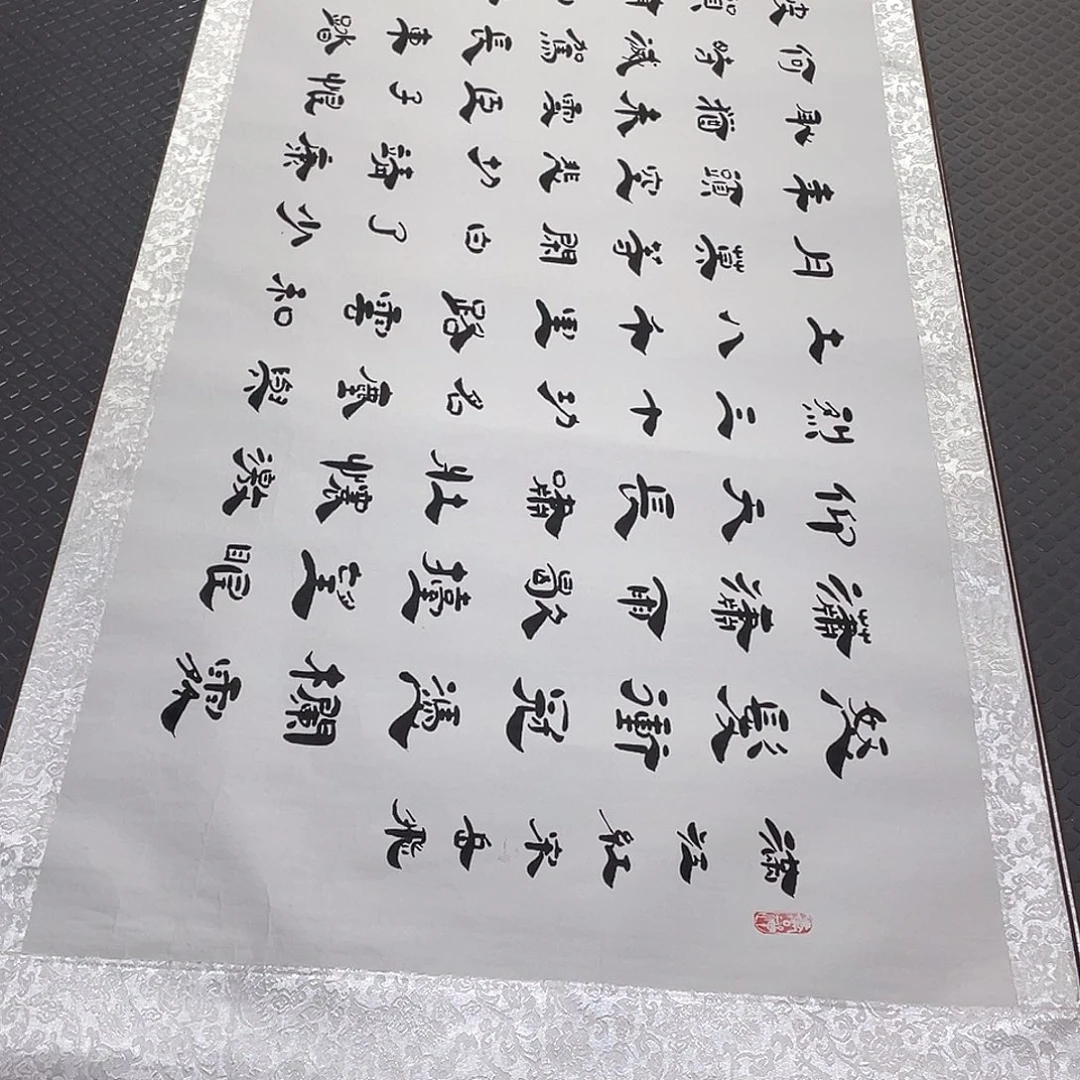 滿江紅宋岳飛
怒髮衝冠憑欄處
瀟瀟雨歇擡望眼
仰天長嘯壯懷激
烈三十功名塵與
土八千里路雲和
月莫等閑白了少
年頭空悲切靖康
恥猶未雪臣子恨
何時滅駕長車踏